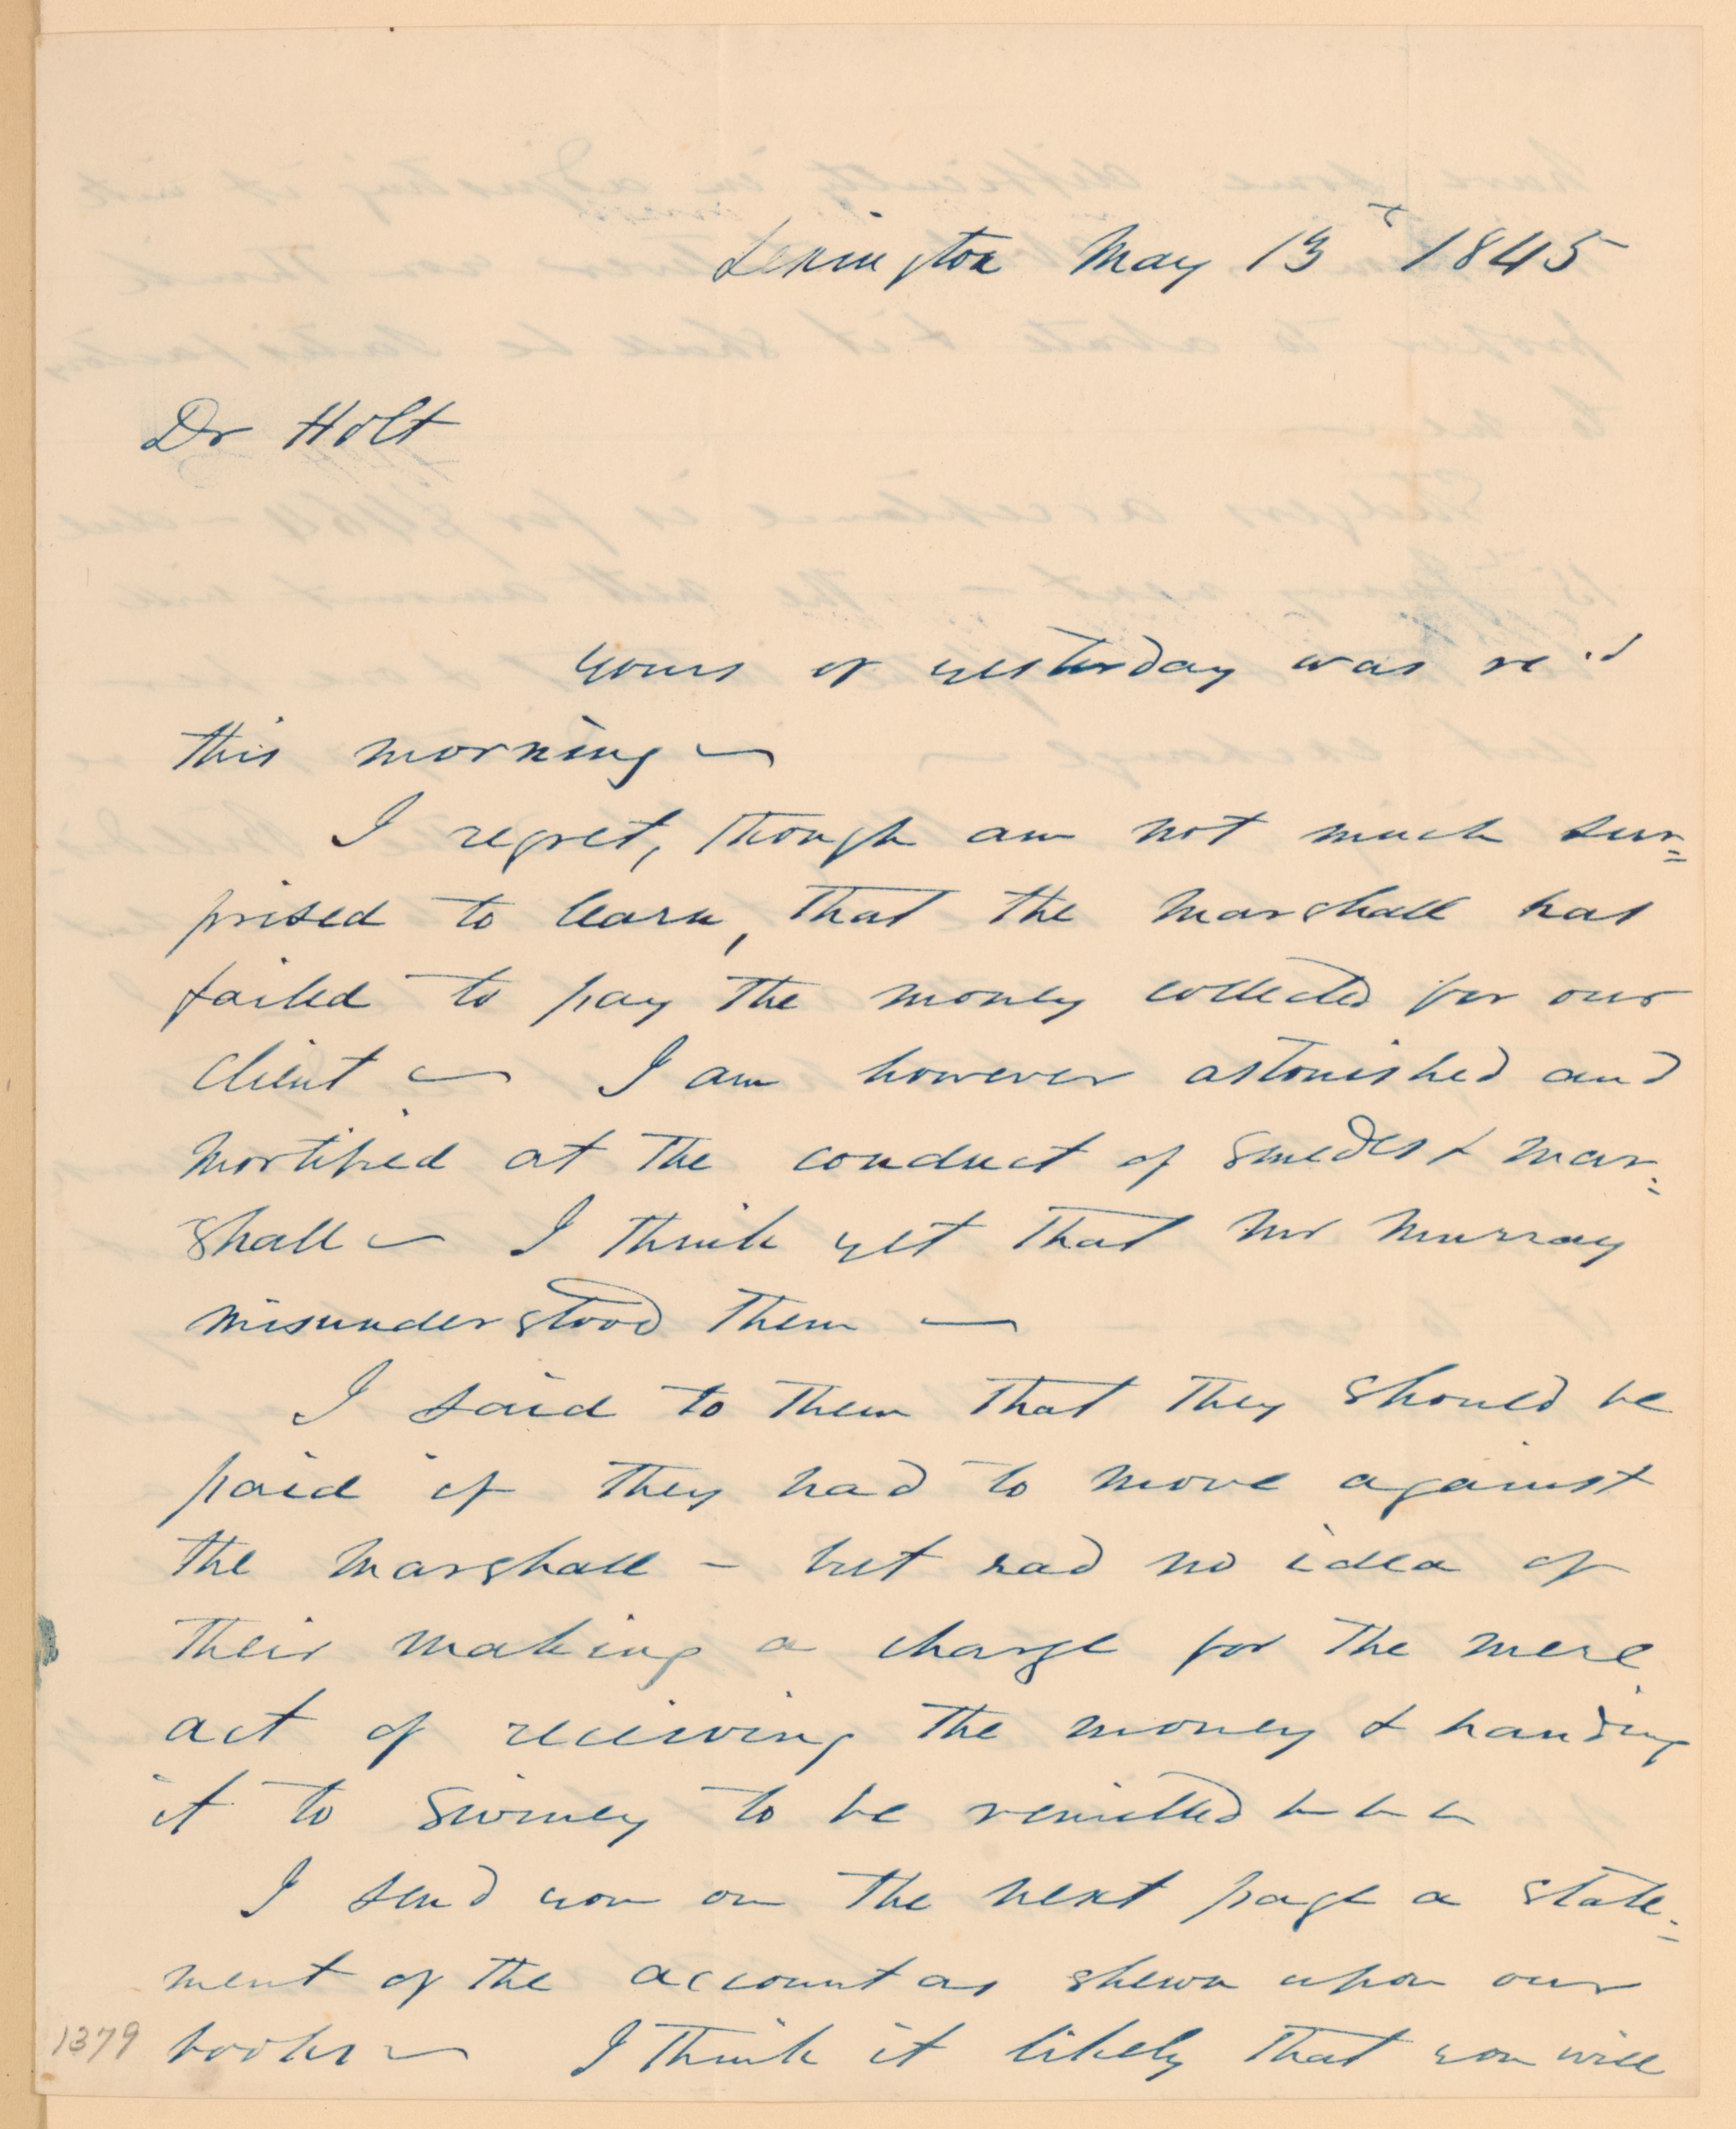 Lexington May 13t 1845
Dr Holt
yours of yesterday was re'd
this morning —
I regret, though am not much sur=
prised to learn, that the marshall has
failed to pay the money collected for our
client — I am however astonished and
mortified at the conduct of Smedes & Mar=
shall — I think yet that Mr Murray
misunderstood them —
I said to them that they should be
paid if they had to move against
the marshall - but had no idea of
their making a charge for the mere
act of receiving the money & handing
it to be remitted — — —
I send you on the next page a state=
ment of the account as shewn upon our
books — I think it likely that you will
1379